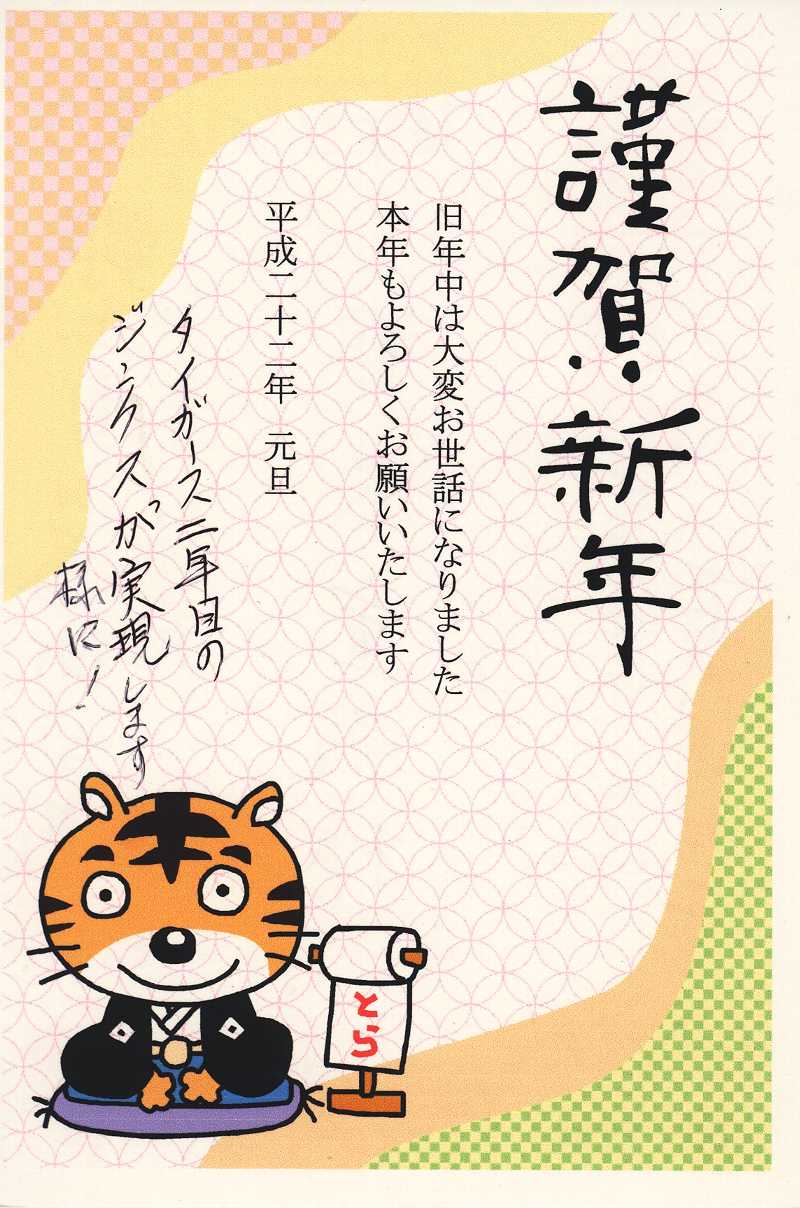 謹賀新年
旧年中は大変お世話になりました
本年もよろしくお願いいたします
平成二十二年 元旦
タイガース二年目の
ジンクスが実現します
様に!
とら